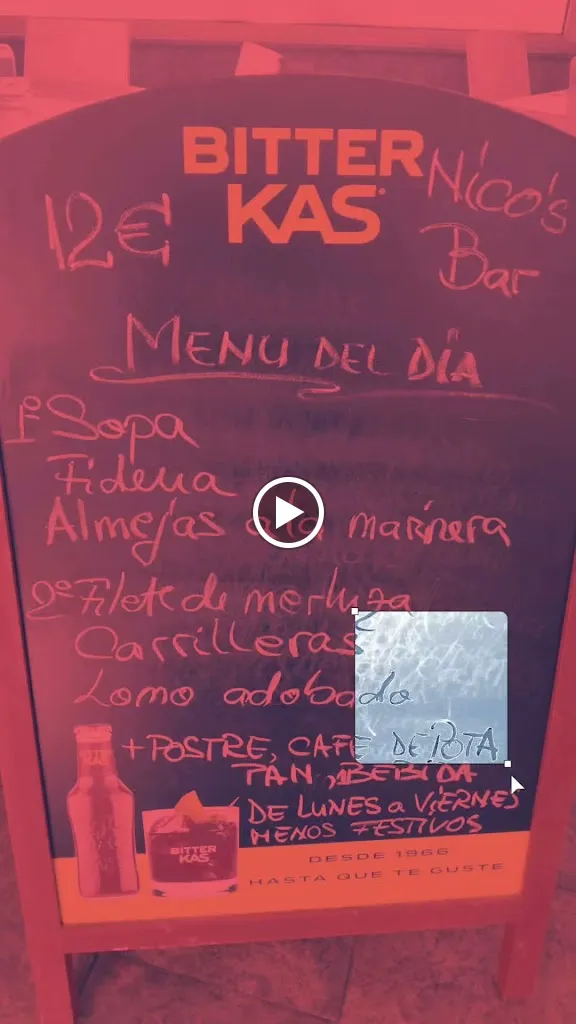 BITTER
KAS
Nico's
Bar
12€
MENU DEL DÍA
1º Sopa
Fideua
Almejas a la marinera
2º Filete de merluza
Carrilleras
Lomo adobado
+ POSTRE, CAFE DEPOTA
TAN, BEBIDA
DE LUNES a VIERNES
MENOS FESTIVOS
BITTER
KAS
DESDE 1966
HASTA QUE TE GUSTE